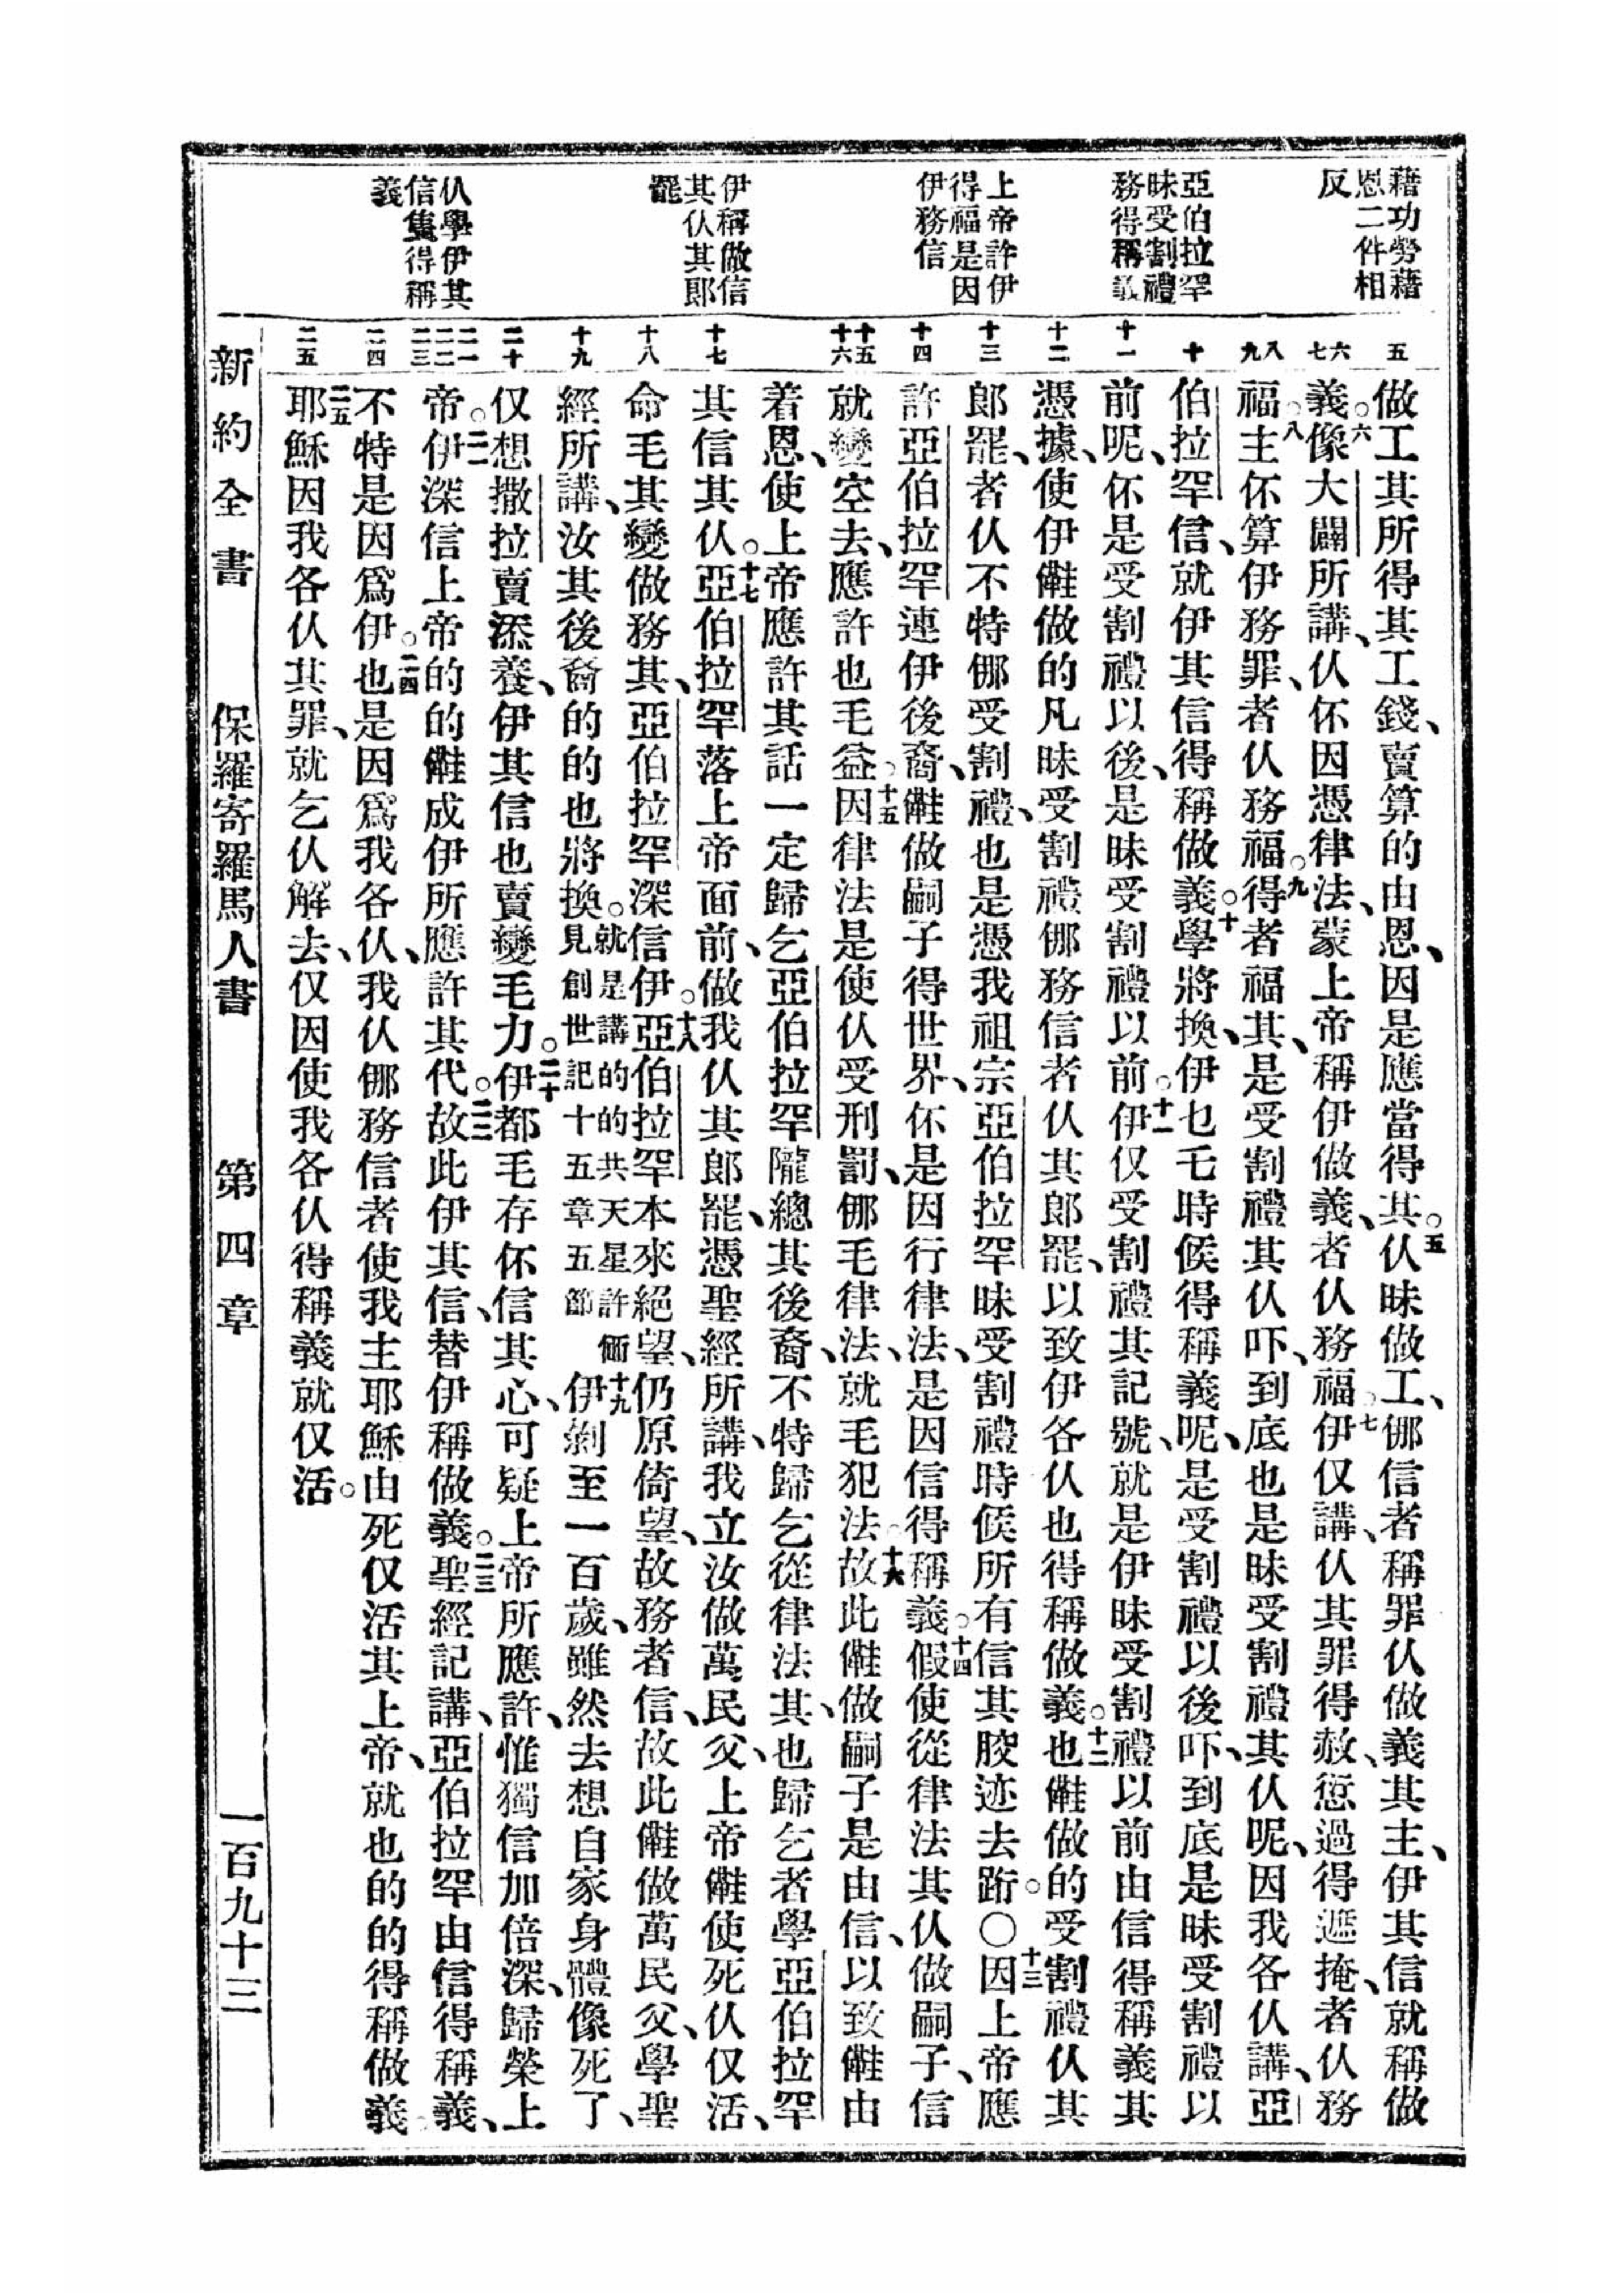 藉功勞藉
恩二件相
反
亞伯拉罕
昧受割禮
務得稱義
上帝許伊
得福是因
伊務信
伊稱做信
其仈其郎
罷
仈學伊其
信隻得稱
義
五
六
七
八
九
十
十一
十二
十三
十四
十五
十六
十七
十八
十九
二十
二一
二二
二三
二四
二五
做工其所得其工錢、賣算的由恩、因是應當得其。五仈昧做工、倻信者稱罪仈做義其主、伊其信就稱做
義。六像大闢所講、仈伓因憑律法、蒙上帝稱伊做義、者仈務福。七伊仅講、仈其罪得赦、愆過得遮掩、者仈務
福。八主伓算伊務罪、者仈務福。九得者福其、是受割禮其仈吓、到底也是昧受割禮其仈呢、因我各仈講、亞
伯拉罕信、就伊其信得稱做義。十學將換、伊乜乇時候得稱義呢、是受割禮以後吓、到底是昧受割禮以
前呢、伓是受割禮以後、是昧受割禮以前。十一伊仅受割禮其記號、就是伊昧受割禮以前由信得稱義其
憑據、使伊𠆧做的凡昧受割禮倻務信者仈其郎罷、以致伊各仈也得稱做義。十二也𠆧做的受割禮仈其
郎罷、者仈不特倻受割禮、也是憑我祖宗亞伯拉罕昧受割禮時候所有信其骹迹去跴。○十三因上帝應
許亞伯拉罕連伊後裔、𠆧做嗣子得世界、伓是因行律法、是因信得稱義。十四假使從律法其仈做嗣子、信
就變空去、應許也毛益。十五因律法是使仈受刑罰、倻毛律法、就毛犯法。十六故此𠆧做嗣子是由信、以致𠆧由
着恩、使上帝應許其話一定歸乞亞伯拉罕隴總其後裔、不特歸乞從律法其、也歸乞者學亞伯拉罕
其信其仈。十七亞伯拉罕落上帝面前、做我仈其郎罷、憑聖經所講、我立汝做萬民父、上帝𠆧使死仈仅活、
命毛其變做務其、亞伯拉罕深信伊。十八亞伯拉罕本來絕望、仍原倚望、故務者信、故此𠆧做萬民父、學聖
經所講、汝其後裔的的也將換。就是講的的共天星許𠁞見創世記十五章五節十九伊𫦨至一百歲、雖然去想自家身體像死了、
仅想撒拉賣𣹢養、伊其信也賣變毛力。二十伊都毛存伓信其心、可疑上帝所應許、惟獨信加倍深、歸榮上
帝。二一伊深信上帝的的𠆧成伊所應許其代。二二故此伊其信、替伊稱做義。二三聖經記講、亞伯拉罕由信得稱義、
不特是因爲伊。二四也是因爲我各仈、我仈倻務信者使我主耶穌由死仅活其上帝、就也的的得稱做義。
二五耶穌因我各仈其罪、就乞仈解去、仅因使我各仈得稱義就仅活。
新約全書　保羅寄羅馬人書　第四章　一百九十三